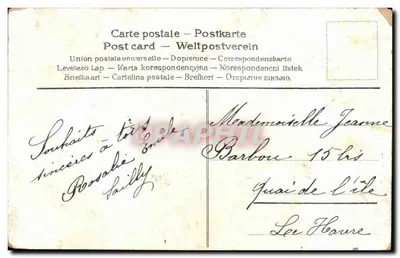 Carte postale – Postkarte
Post card – Weltpostverein
Union postale universelle – Dopisnice – Correspondenzkarte
Levelező Lap – Karta korespondencyjna – Korespondenční lístek
Briefkaart – Cartolina postale – Brefkort – Открытое письмо.
Souhaits
sincères à tous
Emile
Rosalie
Sailly
Mademoiselle Jeanne
Barbou 15 bis
quai de l'île
Le Havre